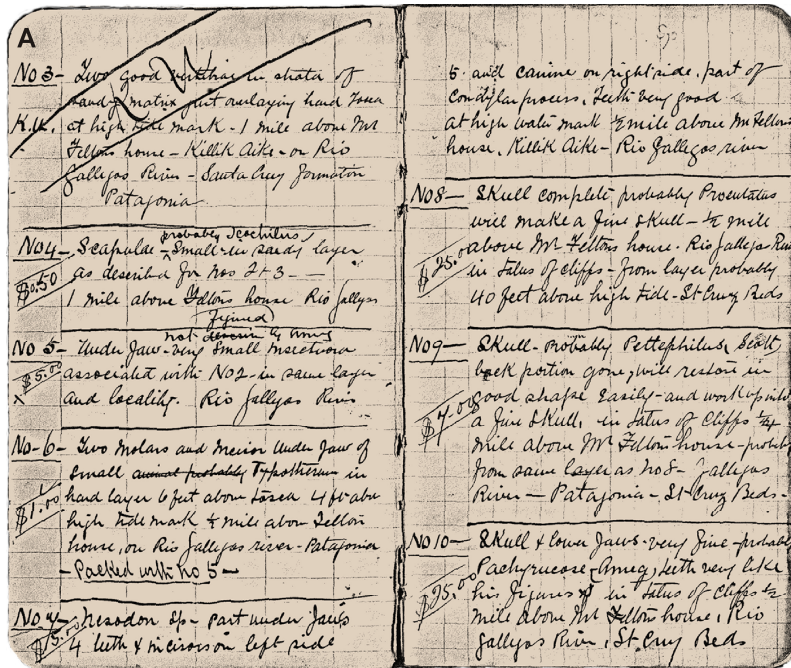 A
No 3- Two good vertebrae in strata of
sandy matrix just overlaying hard Tosca
K.U. at high tide mark - 1 mile above Mr
Felton's house - Killik Aike - or Rio
Gallegos River - Santa Cruz formation
Patagonia
probably Icochilus
No 4- Scapulae - Small - in sandy layer
$0.50 as described for Nos 2 & 3 -
1 mile above Feltons house Rio Gallegos
figured
not by Amig
No 5- Under Jaw - very small Insectivora
$5.00 associated with No 2 - in same layer
x and locality. Rio Gallegos River
No - 6- Two Molars and Incisor Under Jaw of
small animal probably Typotherium in
$1.00 hard layer 6 feet above Tosca 4 ft above
high tide mark ½ mile above Felton
house, on Rio Gallegos river - Patagonia
- Packed with No 5 -
No. 7- Nesodon Sp - part under Jaws
4 teeth & incisors on left side
5. and canine on right side. part of
Condylar process, Teeth very good
at high water mark ½ mile above Mr Feltons
house, Killik Aike - Rio Gallegos river
No 8- Skull complete probably
will make a fine skull - ½ mile
$25.00 above Mr Feltons house. Rio Gallegos
in talus of cliffs - from layer probably
40 feet above high tide - St Cruz Beds
No 9- Skull - Probably
back portion gone, will restore in
$7.00 good shape Easily - and work up into
a fine skull, in talus of cliffs
mile above Mr Feltons house -
from same layer as No 8 - Gallegos
River - Patagonia - St Cruz Beds -
No 10- Skull & lower Jaws - very fine - probably
Pachyrucos - Ameg, teeth very like
his figures in talus of cliffs ½
mile above Mr Feltons house, Rio
Gallegos River, St. Cruz Beds